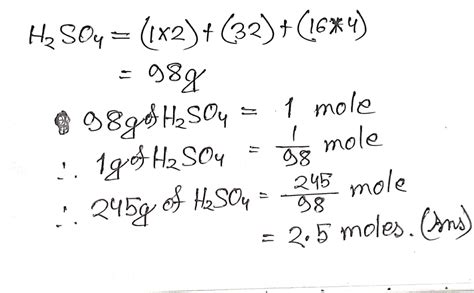 H₂SO₄ = (1×2) + (32) + (16*4)
= 98g
98g of H₂SO₄ = 1 mole
∴ 1g of H₂SO₄ = 1/98 mole
∴ 245g of H₂SO₄ = 245/98 mole
= 2.5 moles. (Ans)